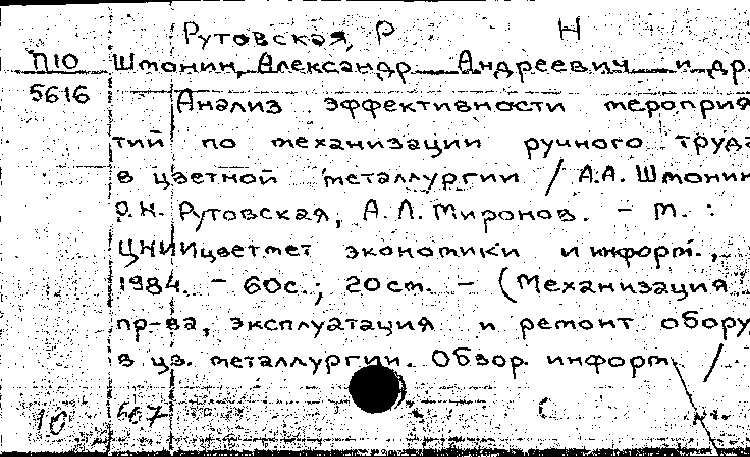 Рутовская, Р Н
П10 Штонин, Александр Андреевич и др.
5616 Анализ эффективности мероприя
тий по механизации ручного труда
в цветной металлургии / А.А. Штонин
Р.Н. Рутовская, А.Л. Миронов. - М. :
ЦНИИцветмет экономики и информ.,
1984. - 60с.; 20см. - (Механизация
пр-ва, эксплуатация и ремонт обору
в цв. металлургии. Обзор. информ. /
10 667